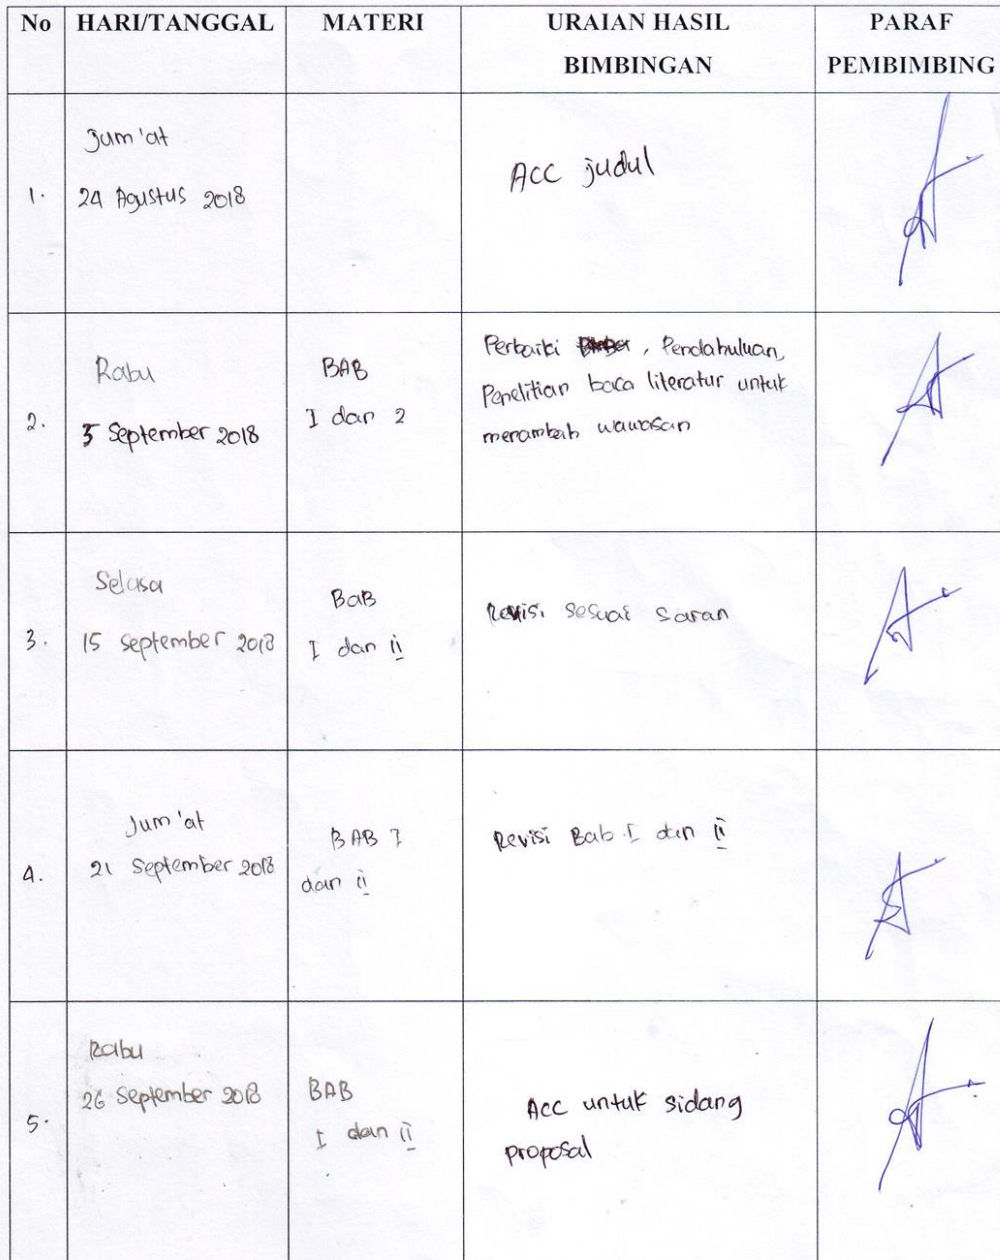 No HARI/TANGGAL MATERI URAIAN HASIL BIMBINGAN PARAF PEMBIMBING
1. Jum'at
24 Agustus 2018
ACC judul
2. Rabu
5 September 2018
BAB
I dan 2
Perbaiki , Pendahuluan,
Penelitian baca literatur untuk
menambah wawasan
3. Selasa
15 September 2018
BaB
I dan ii
Revisi sesuai saran
4. Jum'at
21 September 2018
BAB I
dan ii
Revisi Bab I dan ii
5. Rabu
26 September 2018
BAB
I dan ii
Acc untuk sidang
proposal